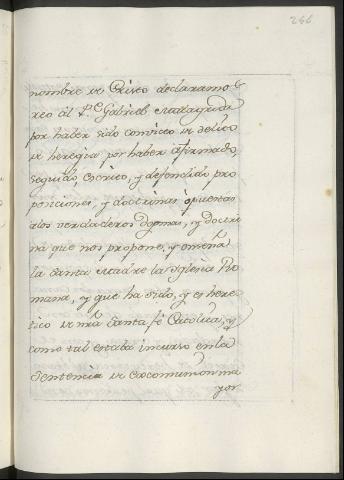 266
nombre de Cristo declaramos
reo al P.e Gabriel Malagrida
por haber sido convicto de delito
de heregia por haber afirmado,
seguido, escrito, y defendido pro
posiciones, y doctrinas opuestas
a los verdaderos Dogmas, y doctri
na que nos propone, y enseña
la Santa Madre la Iglesia Ro
mana, y que ha sido, y es here
tico de nrã Santa fé Catolica, y
como tal estaba incurso en la
Sentencia de excomunion ma
yor